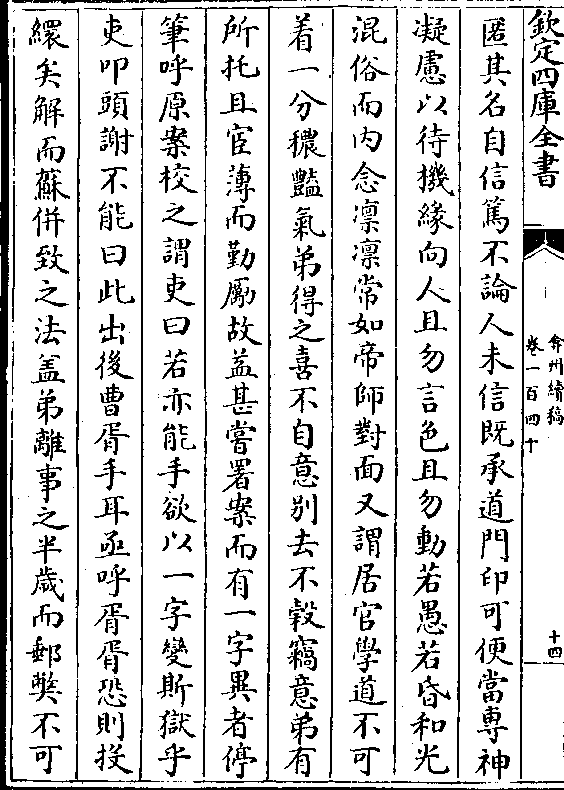 欽定四庫全書
弇州續稿
卷一百四十
十四
匿其名自信篤不論人未信既承道門印可便當専神
凝慮以待機緣向人且勿言色且勿動若愚若昏和光
混俗而内念凛凛常如帝師對面又謂居官學道不可
着一分穠豔氣弟得之喜不自意别去不榖竊意弟有
所托且宦薄而勤勵故益甚嘗署案而有一字異者停
筆呼原案校之謂吏曰若亦能手欲以一字變斯獄乎
吏叩頭謝不能曰此出後曹胥手耳亟呼胥胥恐則投
繯矣解而蘇併致之法盖弟離事之半歲而郵弊不可